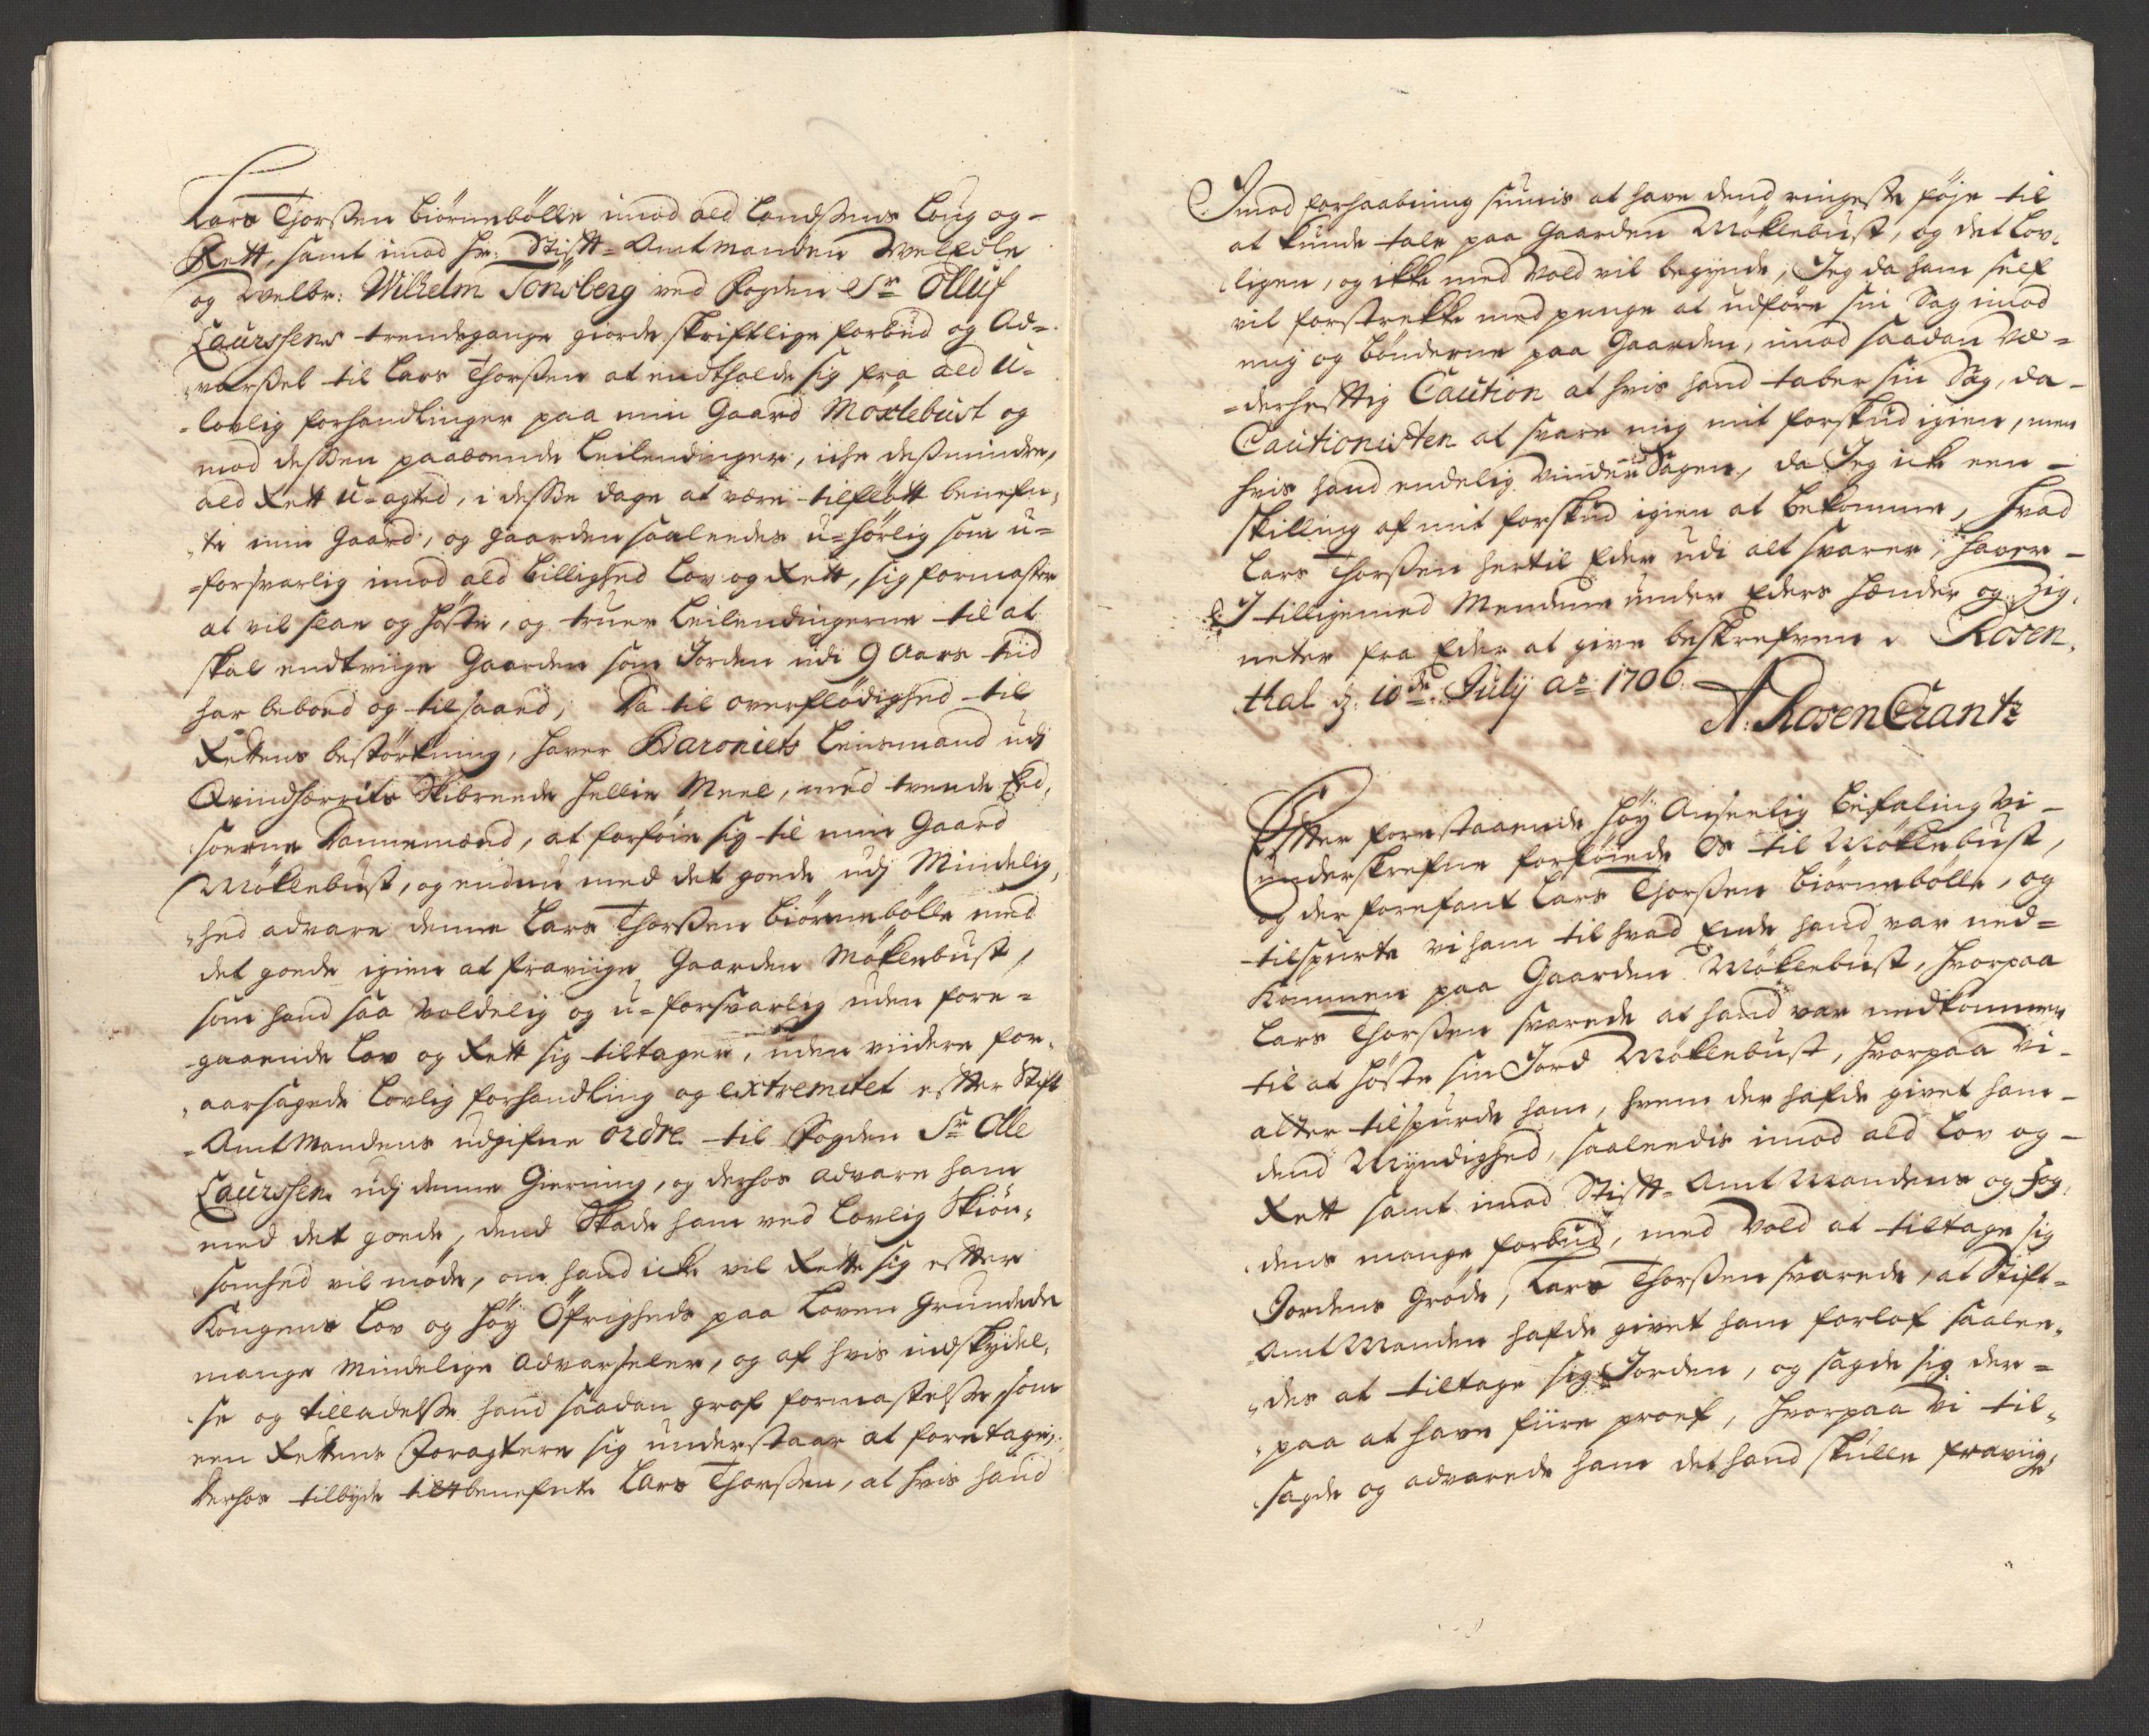 Lars Thorßen Biörnebölle imod ald Landßens Loug og-
Rett, samt imod Hr: Stifft-Amtmanden Weledle
og Welbr: Wilhelm Tönsberg ved Fogden Sr Olluf
Laurssens trendegange giorde skriftlige forbud og Ad-
varßel til Lars Thorßen at endtholde sig fra ald U-
lovlig forhandlinger paa min Gaard Moxlebust og
mod deßen paaboende Leilendinger, iche deßmindre,
ald Rett U-agted, i deße dage at være tilflött benefn-
te min Gaard, og Gaarden saaleedes u-hörlig som u-
forsvarlig imod ald billighed Lov og Rett, sig formaster
at vil slaae og höste, og truer Leilendingerne til at
skal endtviige Gaarden som Jorden udi 9 Aars tiid
har beboed og tilsaaed, Da til overflödighed til
Rettens bestörkning, haver Baroniets Leinsmand udj
Qvindherrits Skibreede Hellie Meel, med tvende Eed-
soerne Dannemænd, at forföie sig til min Gaard
Möklebust, og endnu med det goede udj Mindelig-
hed advare denne Lars Thorßen Biörnebölle med
det goede igien at fraviige Gaarden Möklebust,
som hand saa voldelig og u-forsvarlig uden fore-
gaaende Lov og Rett sig tiltager, uden viidere for-
aarsagede Lovlig forhandling og extremitet effter Stift
Amtmandens udgifne ordre til Fogden Sr Olle
Laurssen udj denne Gierning, og derhos advare ham
med det goede, dend Skade ham ved Lovlig Skiön-
somhed vil möde, om hand icke vil Rette sig effter
Kongens Lov og Höy Öfrigheds paa Loven Grundede
mange Mindelige Advarseler, og af hvis indskydel-
se og tilladelße hand saadan grof formastelße som
een Rettens Foragtere sig understaar at foretage,
derhos tilbyde benefnte Lars Thorßen, at hvis hand
Imod forhaabning siunis at have dend ringeste föje til
at kunde tale paa Gaarden Möklebust, og det Lov-
ligen, og icke med Vold vil begynde, Jeg da ham self
vil forstrekke med penge at udföre sin Sag imod
mig og bönderne paa Gaarden, imod saadan Væ-
derhefftig Caution at hvis hand taber sin Sag, da-
Cautionisten at svare mig mit forskud igien, men
hvis hand endelig vinder Sagen, da Jeg ick een-
skilling af mit forskud igien at bekomme, Hvad
Lars Thorßen hertil Eder udi alt svarer, haver-
I tilligemed Mendene under Eders hænder og Zig-
neter fra Eder at give beskrefven. Rosen-
thal d: 10de July Ao 1706.
A: RosenCrantz
Effter forestaaende höy Anseelig befaling Vi-
underskrefne forföiede os til Möklebust,
og der forefant Lars Thorßen Biörnebölle, og
tilspurte vi ham til hvad Ende hand var ned-
kommen paa Gaarden Möklebust, hvorpaa
Lars Thorßen svarede at hand var nedkommen
til at höste sin Jord Möklebust, hvorpaa Vi-
atter tilspurde ham, hvem der hafde givet ham-
dend Myndighed, saaleedis imod ald Lov og-
Rett samt imod Stifft-Amtmandens og Fog-
dens mange forbud, med Vold at tiltage sig
Jordens Gröde, Lars Thorßen svarede, at Stift-
Amtmanden hafde givet ham forlof saalee-
des at tiltage sig Jorden, og sagde sig der-
paa at have fiire proef, hvorpaa Vi til-
sagde og advarede ham det hand skulle fraviige